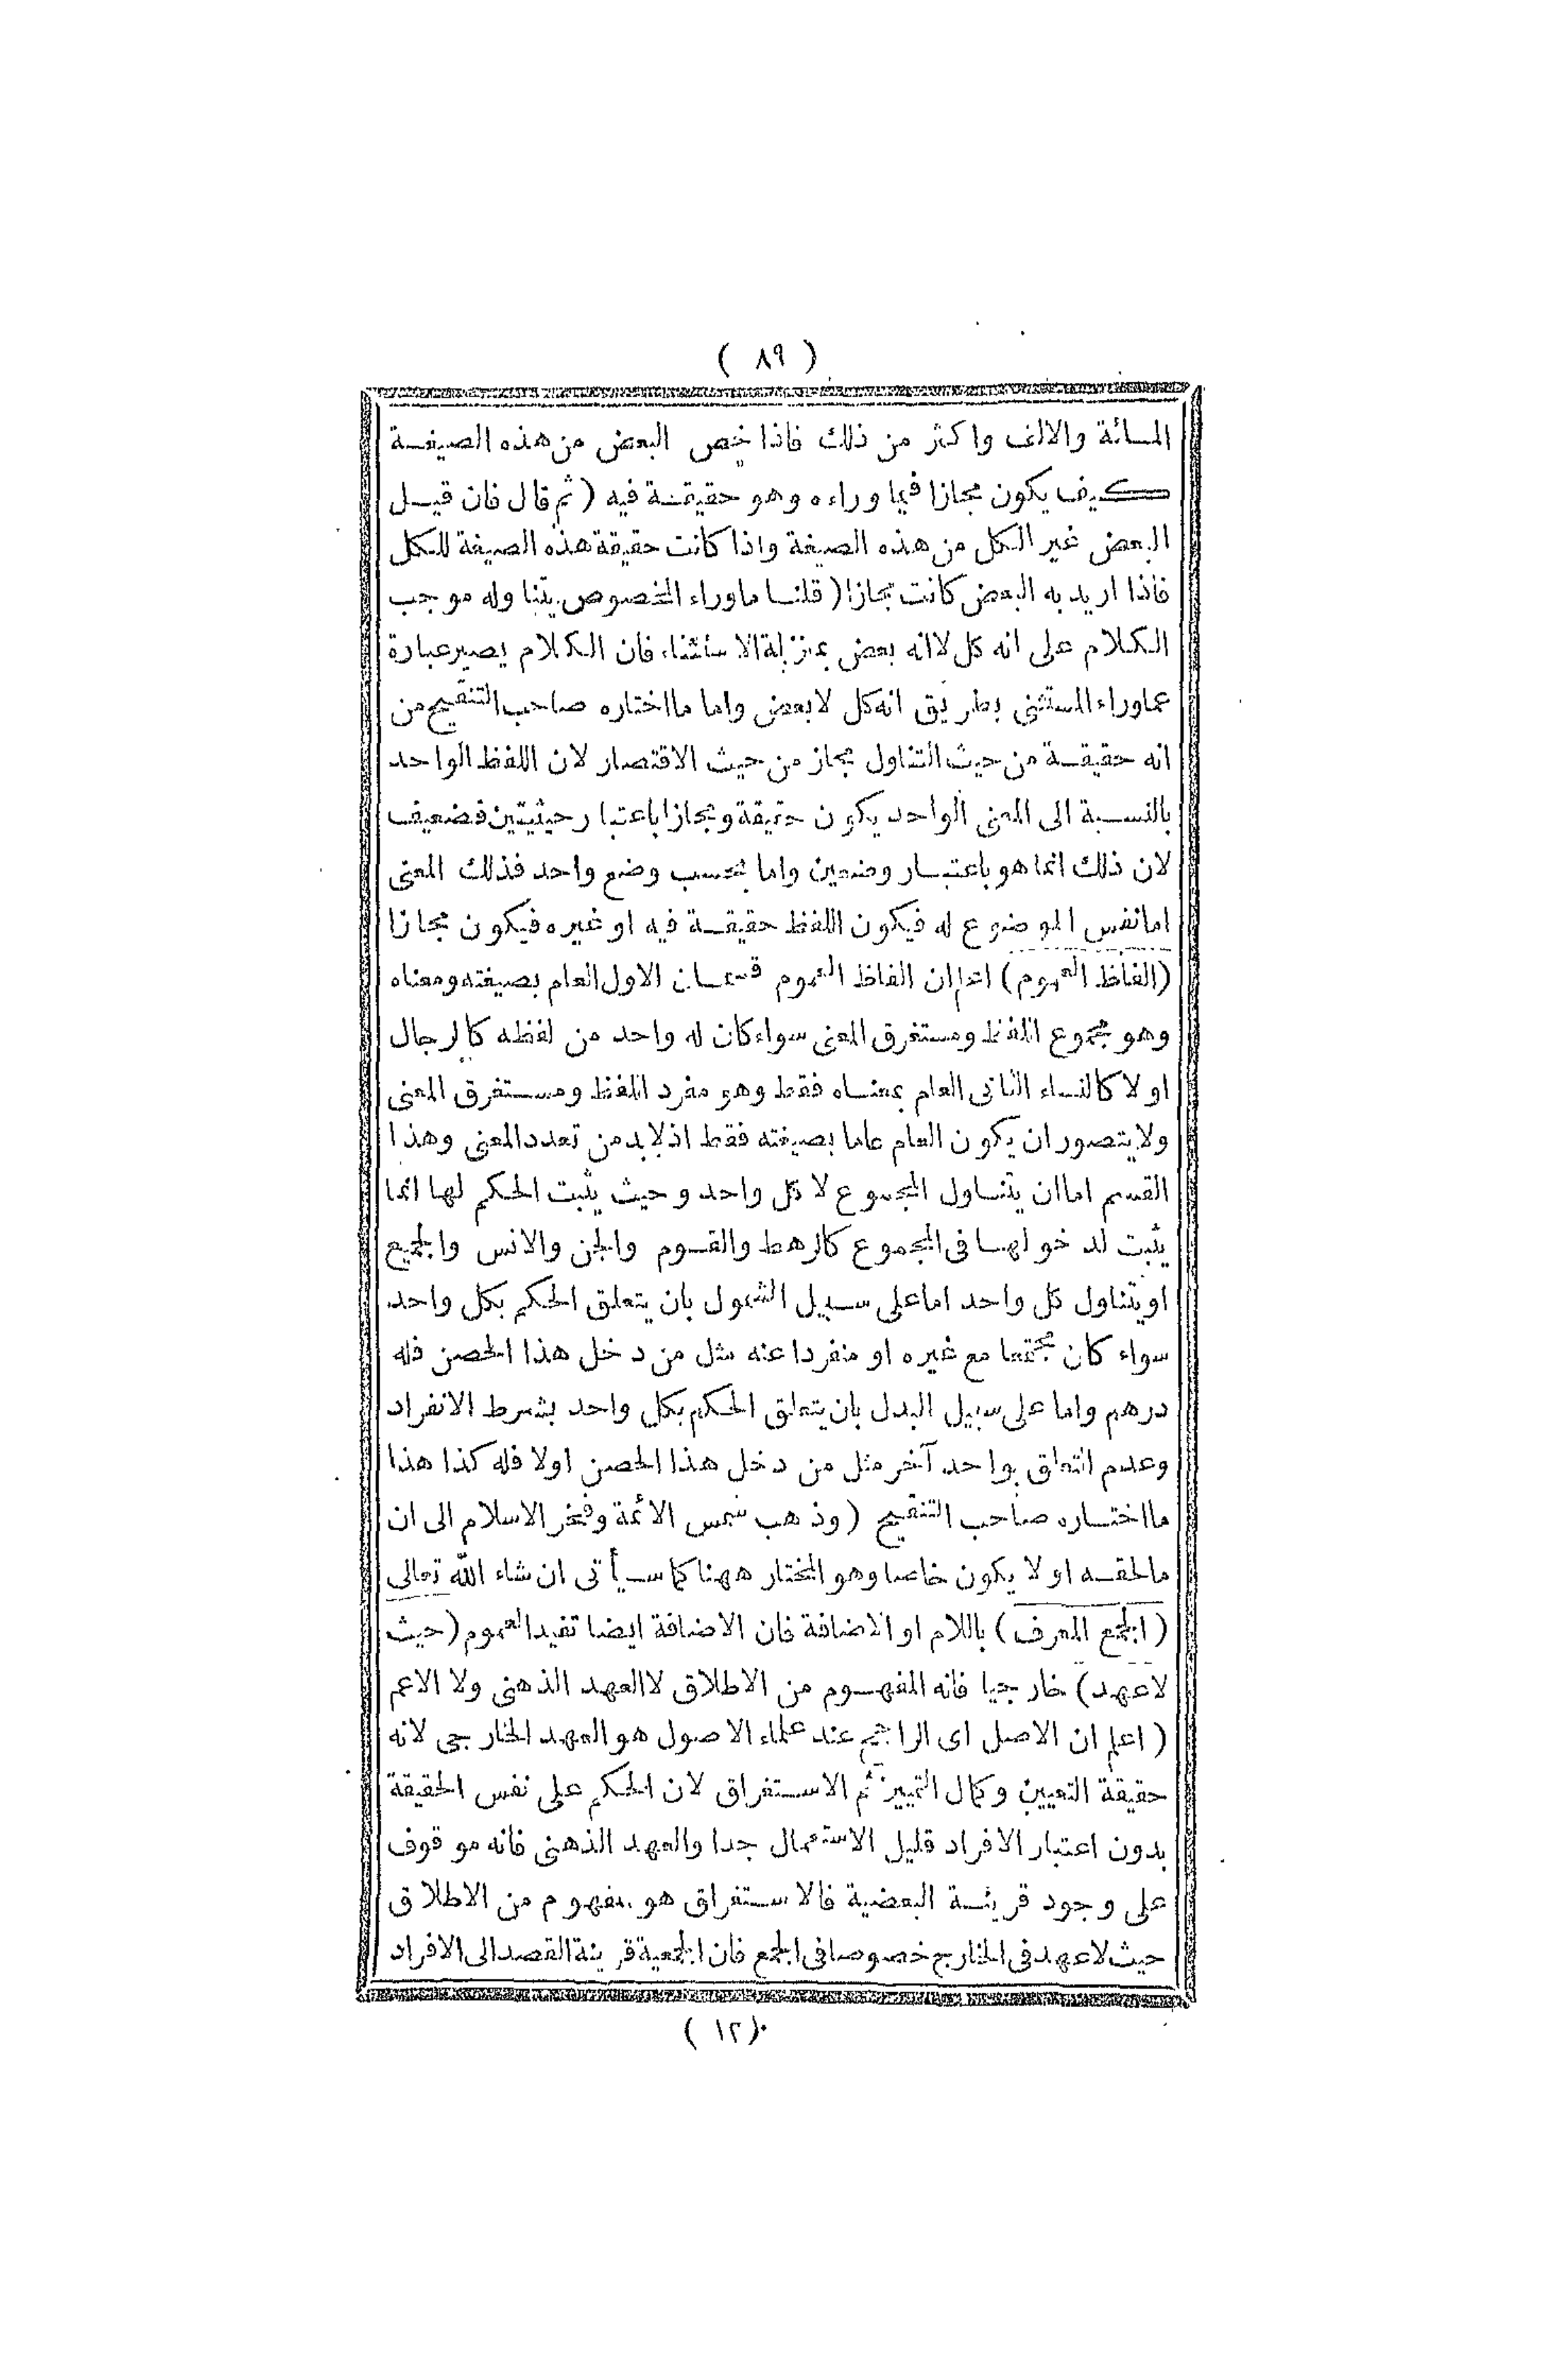 ( ٨٩ )
المائة والالف واكثر من ذلك فاذا خص البعض من هذه الصيغة
كيف يكون مجازا فيما وراءه وهو حقيقة فيه ( ثم قال فان قيل
البعض غير الكل من هذه الصيغة واذا كانت حقيقة هذه الصيغة للكل
فاذا اريد به البعض كانت مجازا ( قلنا ما وراء الخصوص يتناوله موجب
الكلام على انه كل لا انه بعض بمنزلة الاستثناء فان الكلام يصير عبارة
عما وراء المستثنى بطريق انه كل لا بعض واما ما اختاره صاحب التنقيح من
انه حقيقة من حيث التناول مجاز من حيث الاقتصار لان اللفظ الواحد
بالنسبة الى المعنى الواحد يكون حقيقة ومجازا باعتبار حيثيتين فضعيف
لان ذلك انما هو باعتبار وضعين واما بحسب وضع واحد فذلك المعنى
اما نفس الموضوع له فيكون اللفظ حقيقة فيه او غيره فيكون مجازا
(الفاظ العموم) اعلم ان الفاظ العموم قسمان الاول العام بصيغته ومعناه
وهو مجموع اللفظ ومستغرق المعنى سواء كان له واحد من لفظه كالرجال
او لا كالنساء الثانى العام بمعناه فقط وهو مفرد اللفظ ومستغرق المعنى
ولا يتصور ان يكون العام عاما بصيغته فقط اذ لابد من تعدد المعنى وهذا
القسم اما ان يتناول المجموع لا كل واحد وحيث يثبت الحكم لها انما
يثبت لدخولها فى المجموع كالرهط والقوم والجن والانس والجميع
او يتناول كل واحد اما على سبيل الشمول بان يتعلق الحكم بكل واحد
سواء كان مجتمعا مع غيره او منفردا عنه مثل من دخل هذا الحصن فله
درهم واما على سبيل البدل بان يتعلق الحكم بكل واحد بشرط الانفراد
وعدم التعلق بواحد آخر مثل من دخل هذا الحصن اولا فله كذا هذا
ما اختاره صاحب التنقيح ( وذهب شمس الائمة وفخر الاسلام الى ان
ما لحقه اولا يكون خاصا وهو المختار ههنا كما سيأتى ان شاء الله تعالى
( الجمع المعرف ) باللام او الاضافة فان الاضافة ايضا تفيد العموم (حيث
لا عهد ) خارجيا فانه المفهوم من الاطلاق لا العهد الذهنى ولا الاعم
( اعلم ان الاصل اى الراجح عند علماء الاصول هو العهد الخارجى لانه
حقيقة التعيين وكمال التمييز ثم الاستغراق لان الحكم على نفس الحقيقة
بدون اعتبار الافراد قليل الاستعمال جدا والعهد الذهنى فانه موقوف
على وجود قرينة البعضية فالاستغراق هو مفهوم من الاطلاق
حيث لا عهد فى الخارج خصوصا فى الجمع فان الجمعية قرينة القصد الى الافراد
( ١٢ )